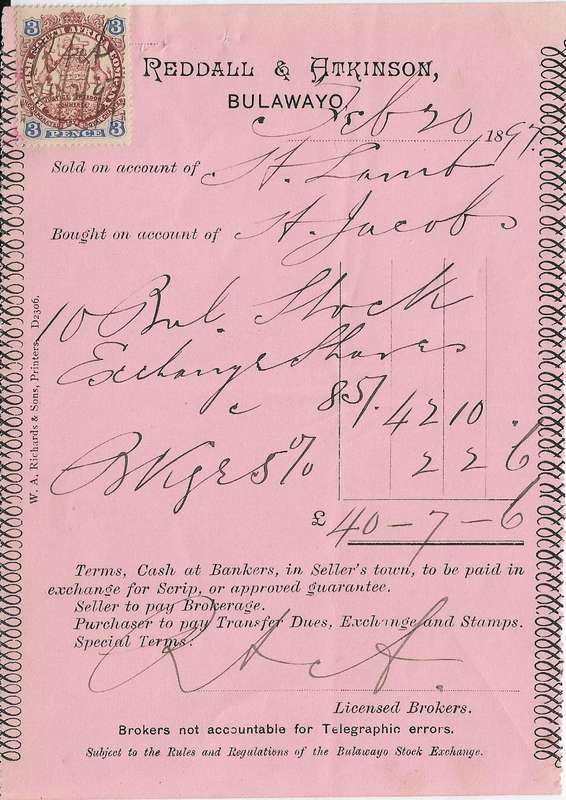 3 3
3 PENCE 3
REDDALL & ATKINSON,
BULAWAYO,
Feb 20 1897.
Sold on account of H. Lamb
Bought on account of H. Jacobs
10 Bul. Stock
Exchange Shares
c 85/. 42 10 .
Bkge 5% 2 2 6
£ 40-7-6
Terms, Cash at Bankers, in Seller's town, to be paid in
exchange for Scrip, or approved guarantee.
Seller to pay Brokerage.
Purchaser to pay Transfer Dues, Exchange and Stamps.
Special Terms:
R & A.
Licensed Brokers.
Brokers not accountable for Telegraphic errors.
Subject to the Rules and Regulations of the Bulawayo Stock Exchange.
W. A. Richards & Sons, Printers. D2306.